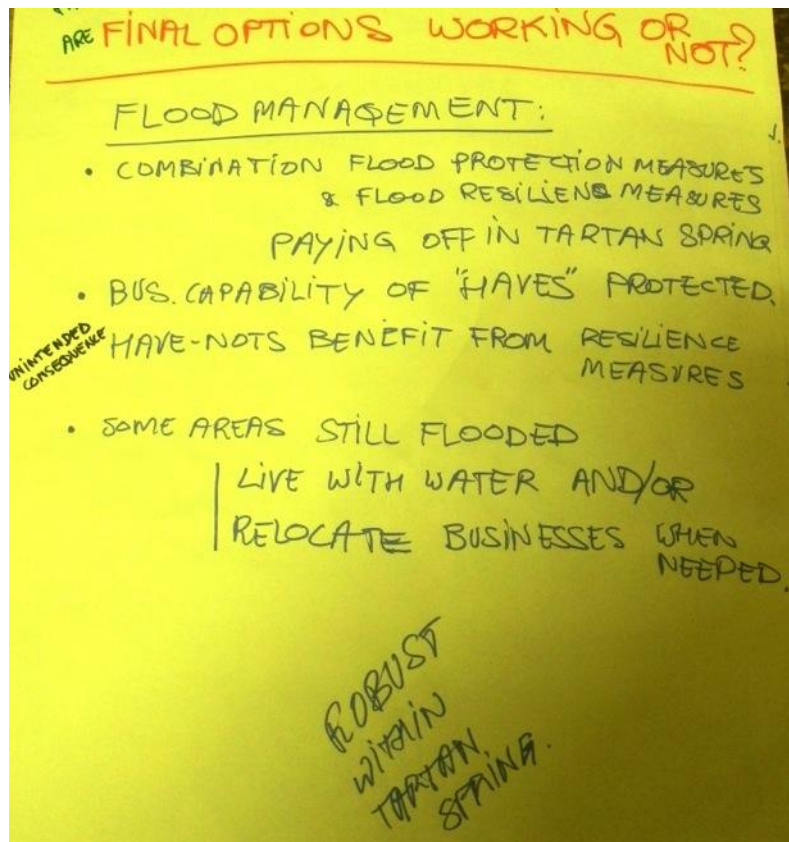 ARE FINAL OPTIONS WORKING OR
NOT?
FLOOD MANAGEMENT:
1.
• COMBINATION FLOOD PROTECTION MEASURES
& FLOOD RESILIENS MEASURES
PAYING OFF IN TARTAN SPRING
• BUS. CAPABILITY OF "HAVES" PROTECTED.
UNINTENDED
CONSEQUENCE
HAVE-NOTS BENEFIT FROM RESILIENCE
MEASURES
• SOME AREAS STILL FLOODED
LIVE WITH WATER AND/OR
RELOCATE BUSINESSES WHEN
NEEDED.
ROBUST
WITHIN
TARTAN
SPRING.